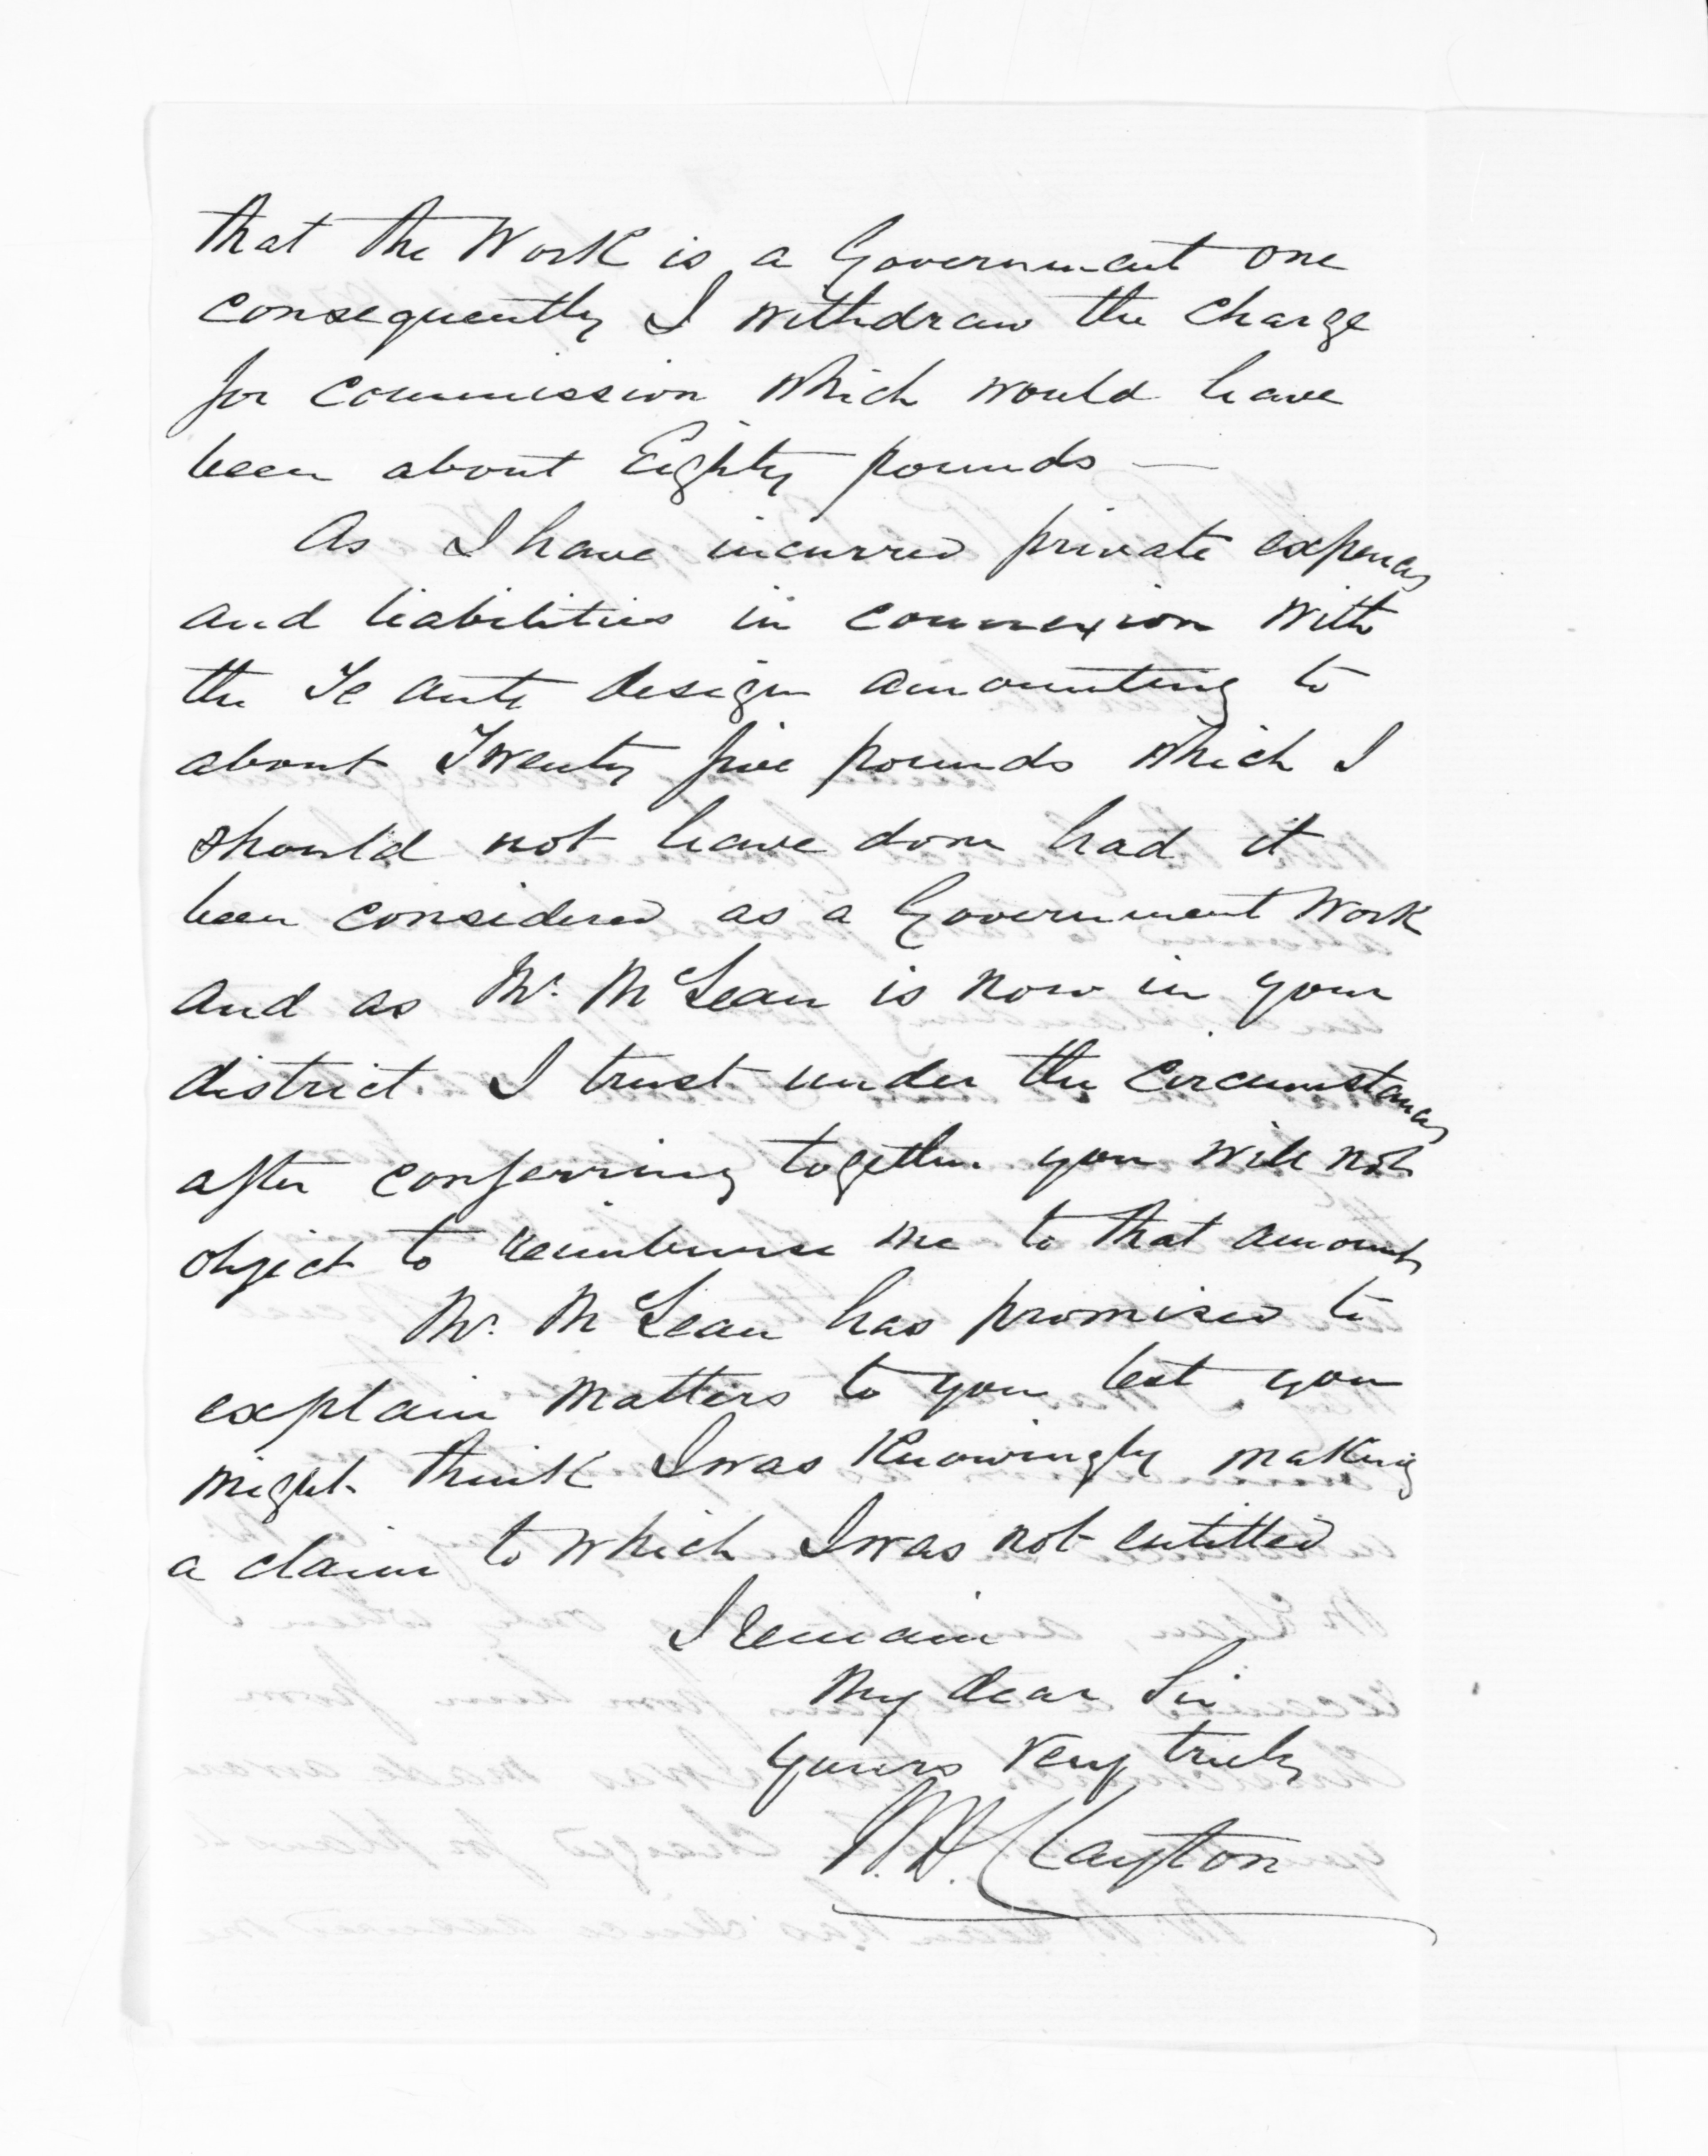 that the Work is a Government one
consequently I withdraw the charge
for commission which would have
been about Eighty pounds —
As I have incurred private expences
and liabilities in connexion with
the Te aute design amounting to
about Twenty five pounds which I
should not have done had it
been considered as a Government Work
and as Mr. McLean is now in your
district I trust under the circumstances
after conferring together you will not
object to reimburse me to that amount
Mr. McLean has promised to
explain matters to you lest you
might think I was knowingly making
a claim to which I was not entitled
I remain
My dear Sir
Yours very truly
W. H. Clayton